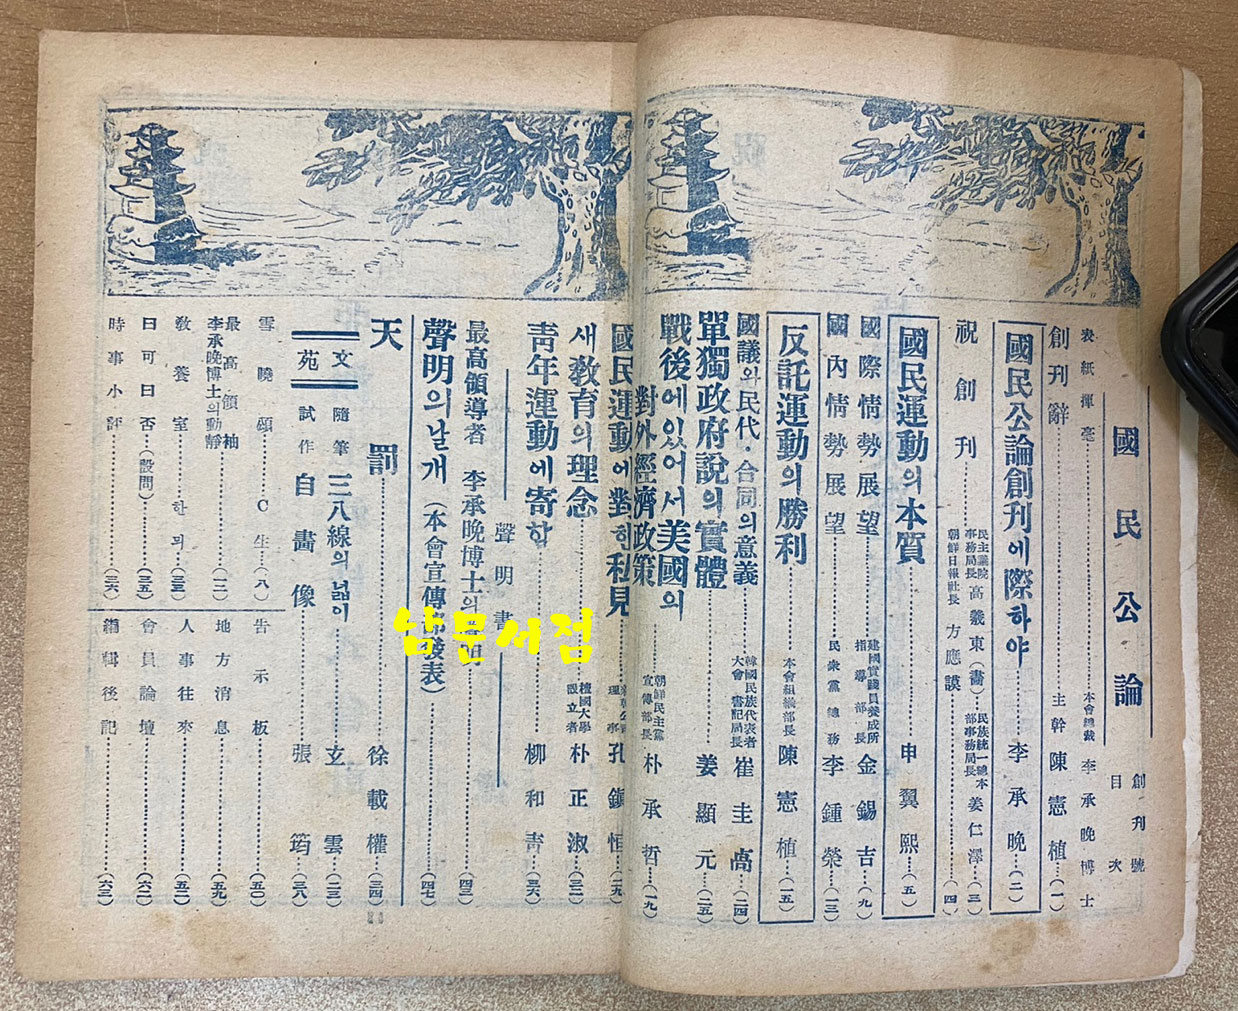 國民公論
創刊號
目次
表紙揮毫 本會總裁 李承晚博士
創刊辭 主幹 陳憲植 (一)
國民公論創刊에際하야 李承晚 (二)
祝創刊
民主議院事務局長 高羲東(畵) 民族統一總本部事務局長 姜仁澤 (三)
朝鮮日報社長 方應謨 (四)
國民運動의本質 申翼熙 (五)
國際情勢展望 建國實踐員養成所指導部長 金錫吉 (九)
國內情勢展望 民衆黨總務 李鍾榮 (一三)
反託運動의勝利 本會組織部長 陳憲植 (一五)
國議와民代·合同의意義 韓國民族代表者大會 書記局長 崔圭卨 (二四)
單獨政府說의實體 姜顯元 (二五)
戰後에있어서美國의
對外經濟政策 朝鮮民主黨宣傳部長 朴承哲 (一九)
國民運動에對한私見 理事 孔鎭恒 (二九)
새敎育의理念 檀國大學設立者 朴正淑 (三二)
靑年運動에寄함 柳和靑 (三六)
聲明書
最高領導者 李承晚博士의聲明 (四三)
聲明의날개 (本會宣傳部發表) (四七)
天罰 徐載權 (三四)
文苑
隨筆 三八線의넓이 玄雲 (二三)
試作 自畵像 張筠 (三八)
雪曉頌 C生 (八)
最高領袖
李承晚博士의動靜 (一二)
敎養室 한뫼 (三三)
曰可曰否(設問) (三五)
時事小評 (三六)
告示板 (五〇)
地方消息 (五九)
人事往來 (五二)
會員論壇 (六二)
編輯後記 (六三)
남문서점